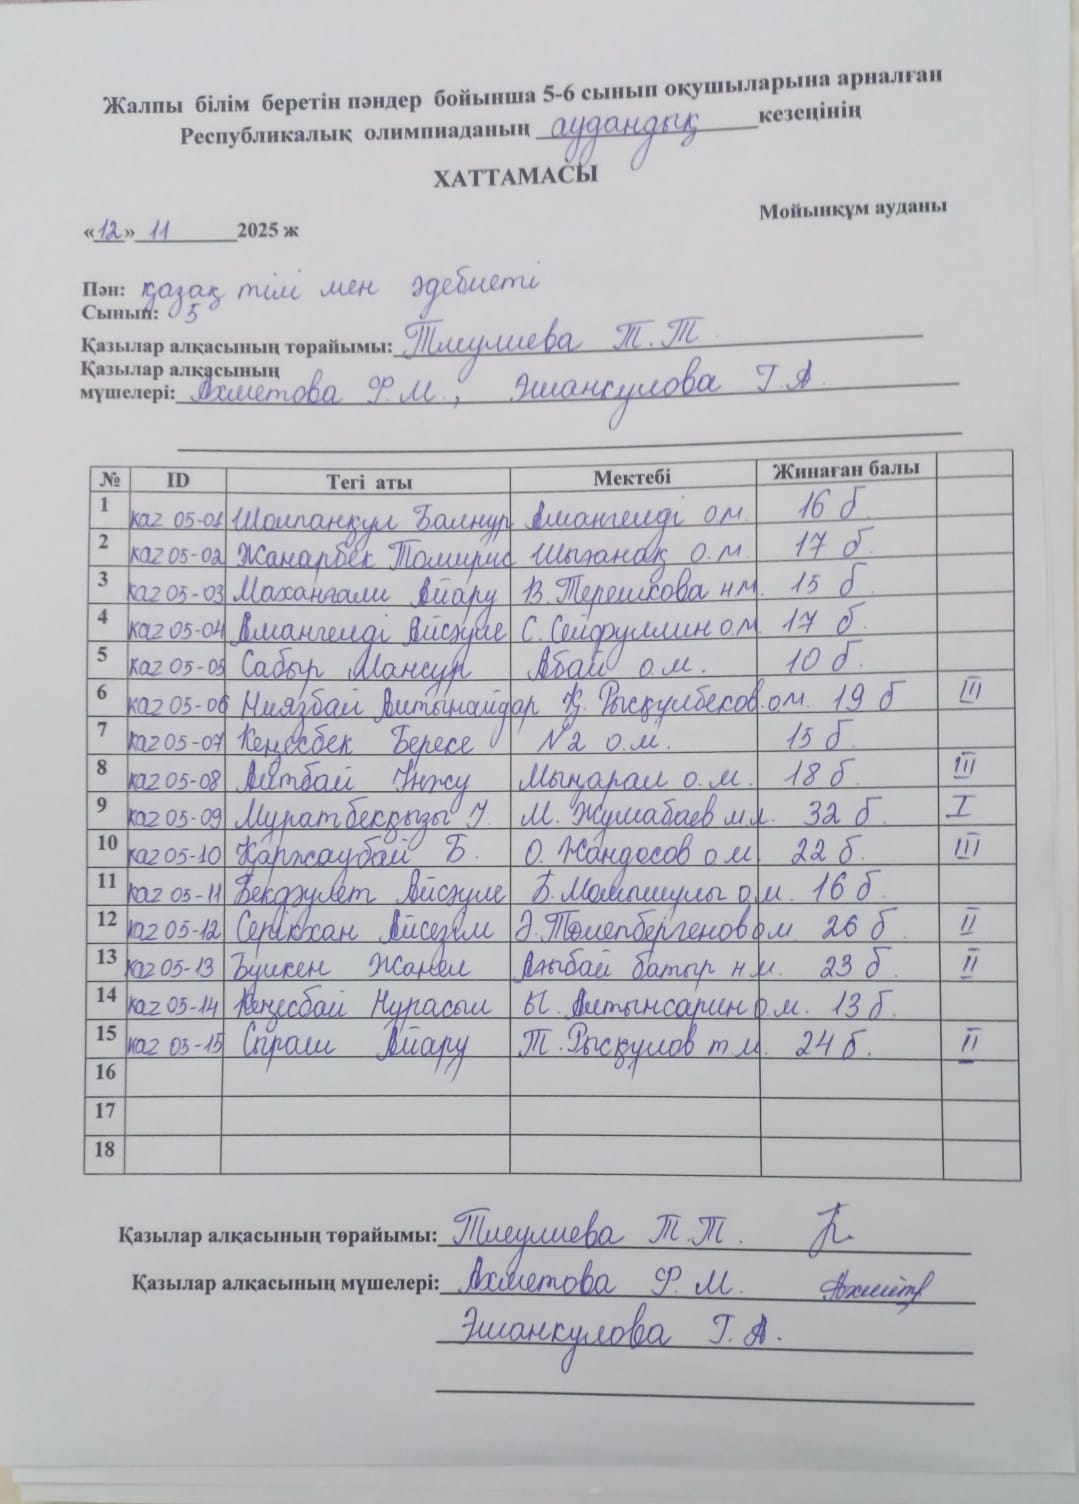 Жалпы білім беретін пәндер бойынша 5-6 сынып оқушыларына арналған
Республикалық олимпиаданың аудандық кезеңінің
ХАТТАМАСЫ
Мойынқұм ауданы
«12» 11 2025 ж
Пән: қазақ тілі мен әдебиеті
Сынып: 5
Қазылар алқасының төрайымы: Тлеулиева Т.Т
Қазылар алқасының
мүшелері: Ахметова Ф.М., Эшанкулова Г.А.
№ ID Тегі аты Мектебі Жинаған балы
1 каz 05-01 Шолпанқұл Балнұр Амангелді о.м. 16 б
2 каz 05-02 Жанарбек Томирис Шығанақ о.м. 17 б.
3 каz 05-03 Маханғали Айару В.Терешкова н.м. 15 б
4 каz 05-04 Амангелді Айсәуле С.Сейфуллин о.м. 17 б.
5 каz 05-05 Сабыр Мансур Абай о.м. 10 б.
6 каz 05-06 Ниязбай Алтынайдар Қ. Рысқұлбеков о.м. 19 б III
7 каz 05-07 Кеңесбек Береке №2 о.м. 15 б.
8 каz 05-08 Алтбай Інжу Мыңарал о.м. 18 б. III
9 каz 05-09 Мұратбекқызы І. М. Жұмабаев м.л. 32 б. I
10 каz 05-10 Қаржаубай Б. О. Жандосов о.м. 22 б. III
11 каz 05-11 Бекдәулет Айсәуле Б.Момышұлы о.м. 16 б.
12 каz 05-12 Серікхан Айсезім Ә.Төлепбергенов о.м 26 б II
13 каz 05-13 Бүркен Жанел Азыбай батыр н.м. 23 б. II
14 каz 05-14 Кеңесбай Нұрасыл Ы. Алтынсарин о.м. 13 б.
15 каz 05-15 Сыраш Айару Т. Рысқұлов т.м. 24 б. II
16
17
18
Қазылар алқасының төрайымы: Тлеулиева Т.Т.
Қазылар алқасының мүшелері: Ахметова Ф. М. Ахмет
Эшанкулова Г.А.